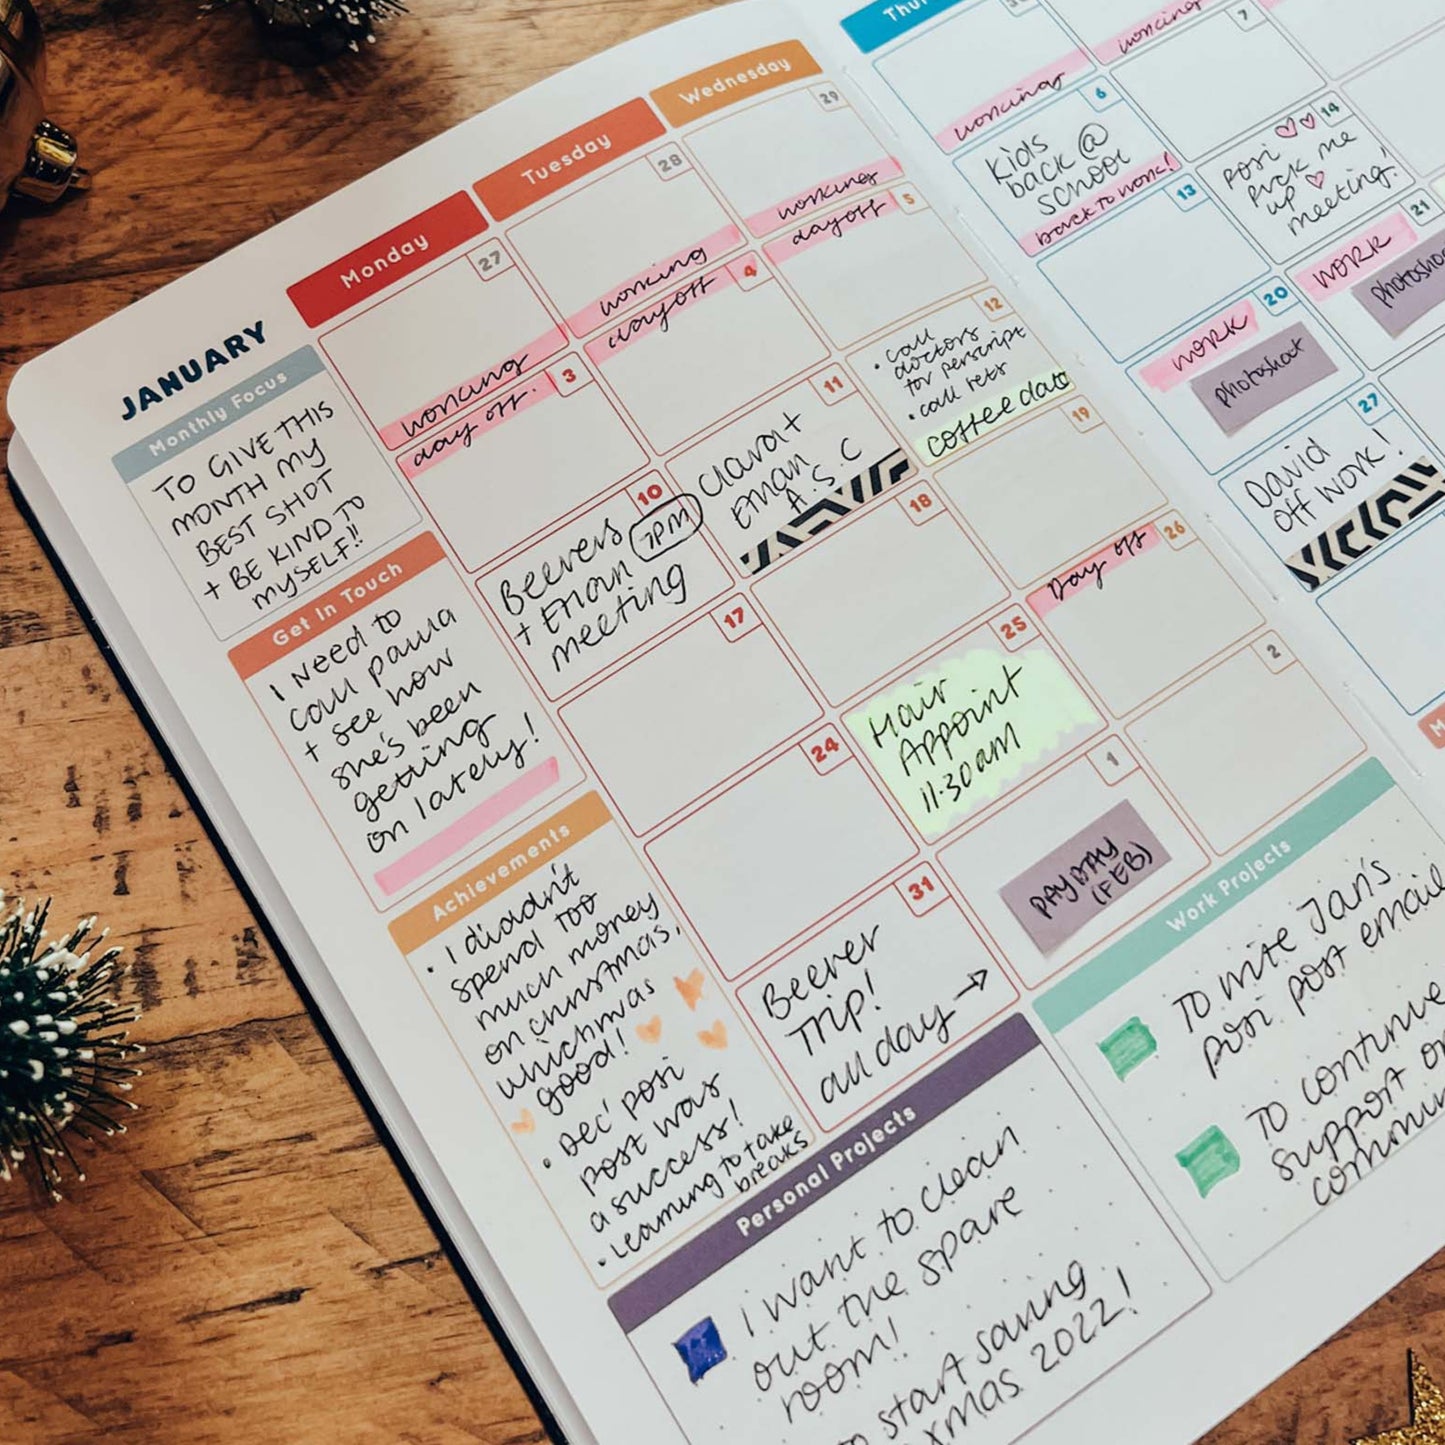 JANUARY
Monthly Focus
TO GIVE THIS
MONTH MY
BEST SHOT
+ BE KIND TO
MYSELF!!
Get In Touch
I NEED TO
CALL PAULA
+ see how
she's been
getting
on lately!
Achievements
• I diddn't
spend too
much money
on christmas,
which was
good!
• Dec' posi
post was
a success!
• Learning to take
breaks
Monday
Tuesday
Wednesday
27
working
28
working
29
working
3
day off.
4
day off
5
day off
10
Beevers
7PM
+ Ethan
meeting
11
Clara +
Ethan
A.S.C
12
• call
doctors
for perscript
• call rets
coffee date
17
18
19
24
25
Hair
Appoint
11.30am
26
Day off
31
Beever
Trip!
all day →
1
PAYDAY
(FEB)
2
30
working
working
6
Kids
back @
school
back to work!
7
13
14
Posi
Pick me
up
meeting!
20
WORK
photoshoot
21
WORK
27
David
off work!
Personal Projects
I want to clean
out the spare
room!
to start saving
xmas 2022!
Work Projects
TO write Jan's
Posi post email
TO continue
support